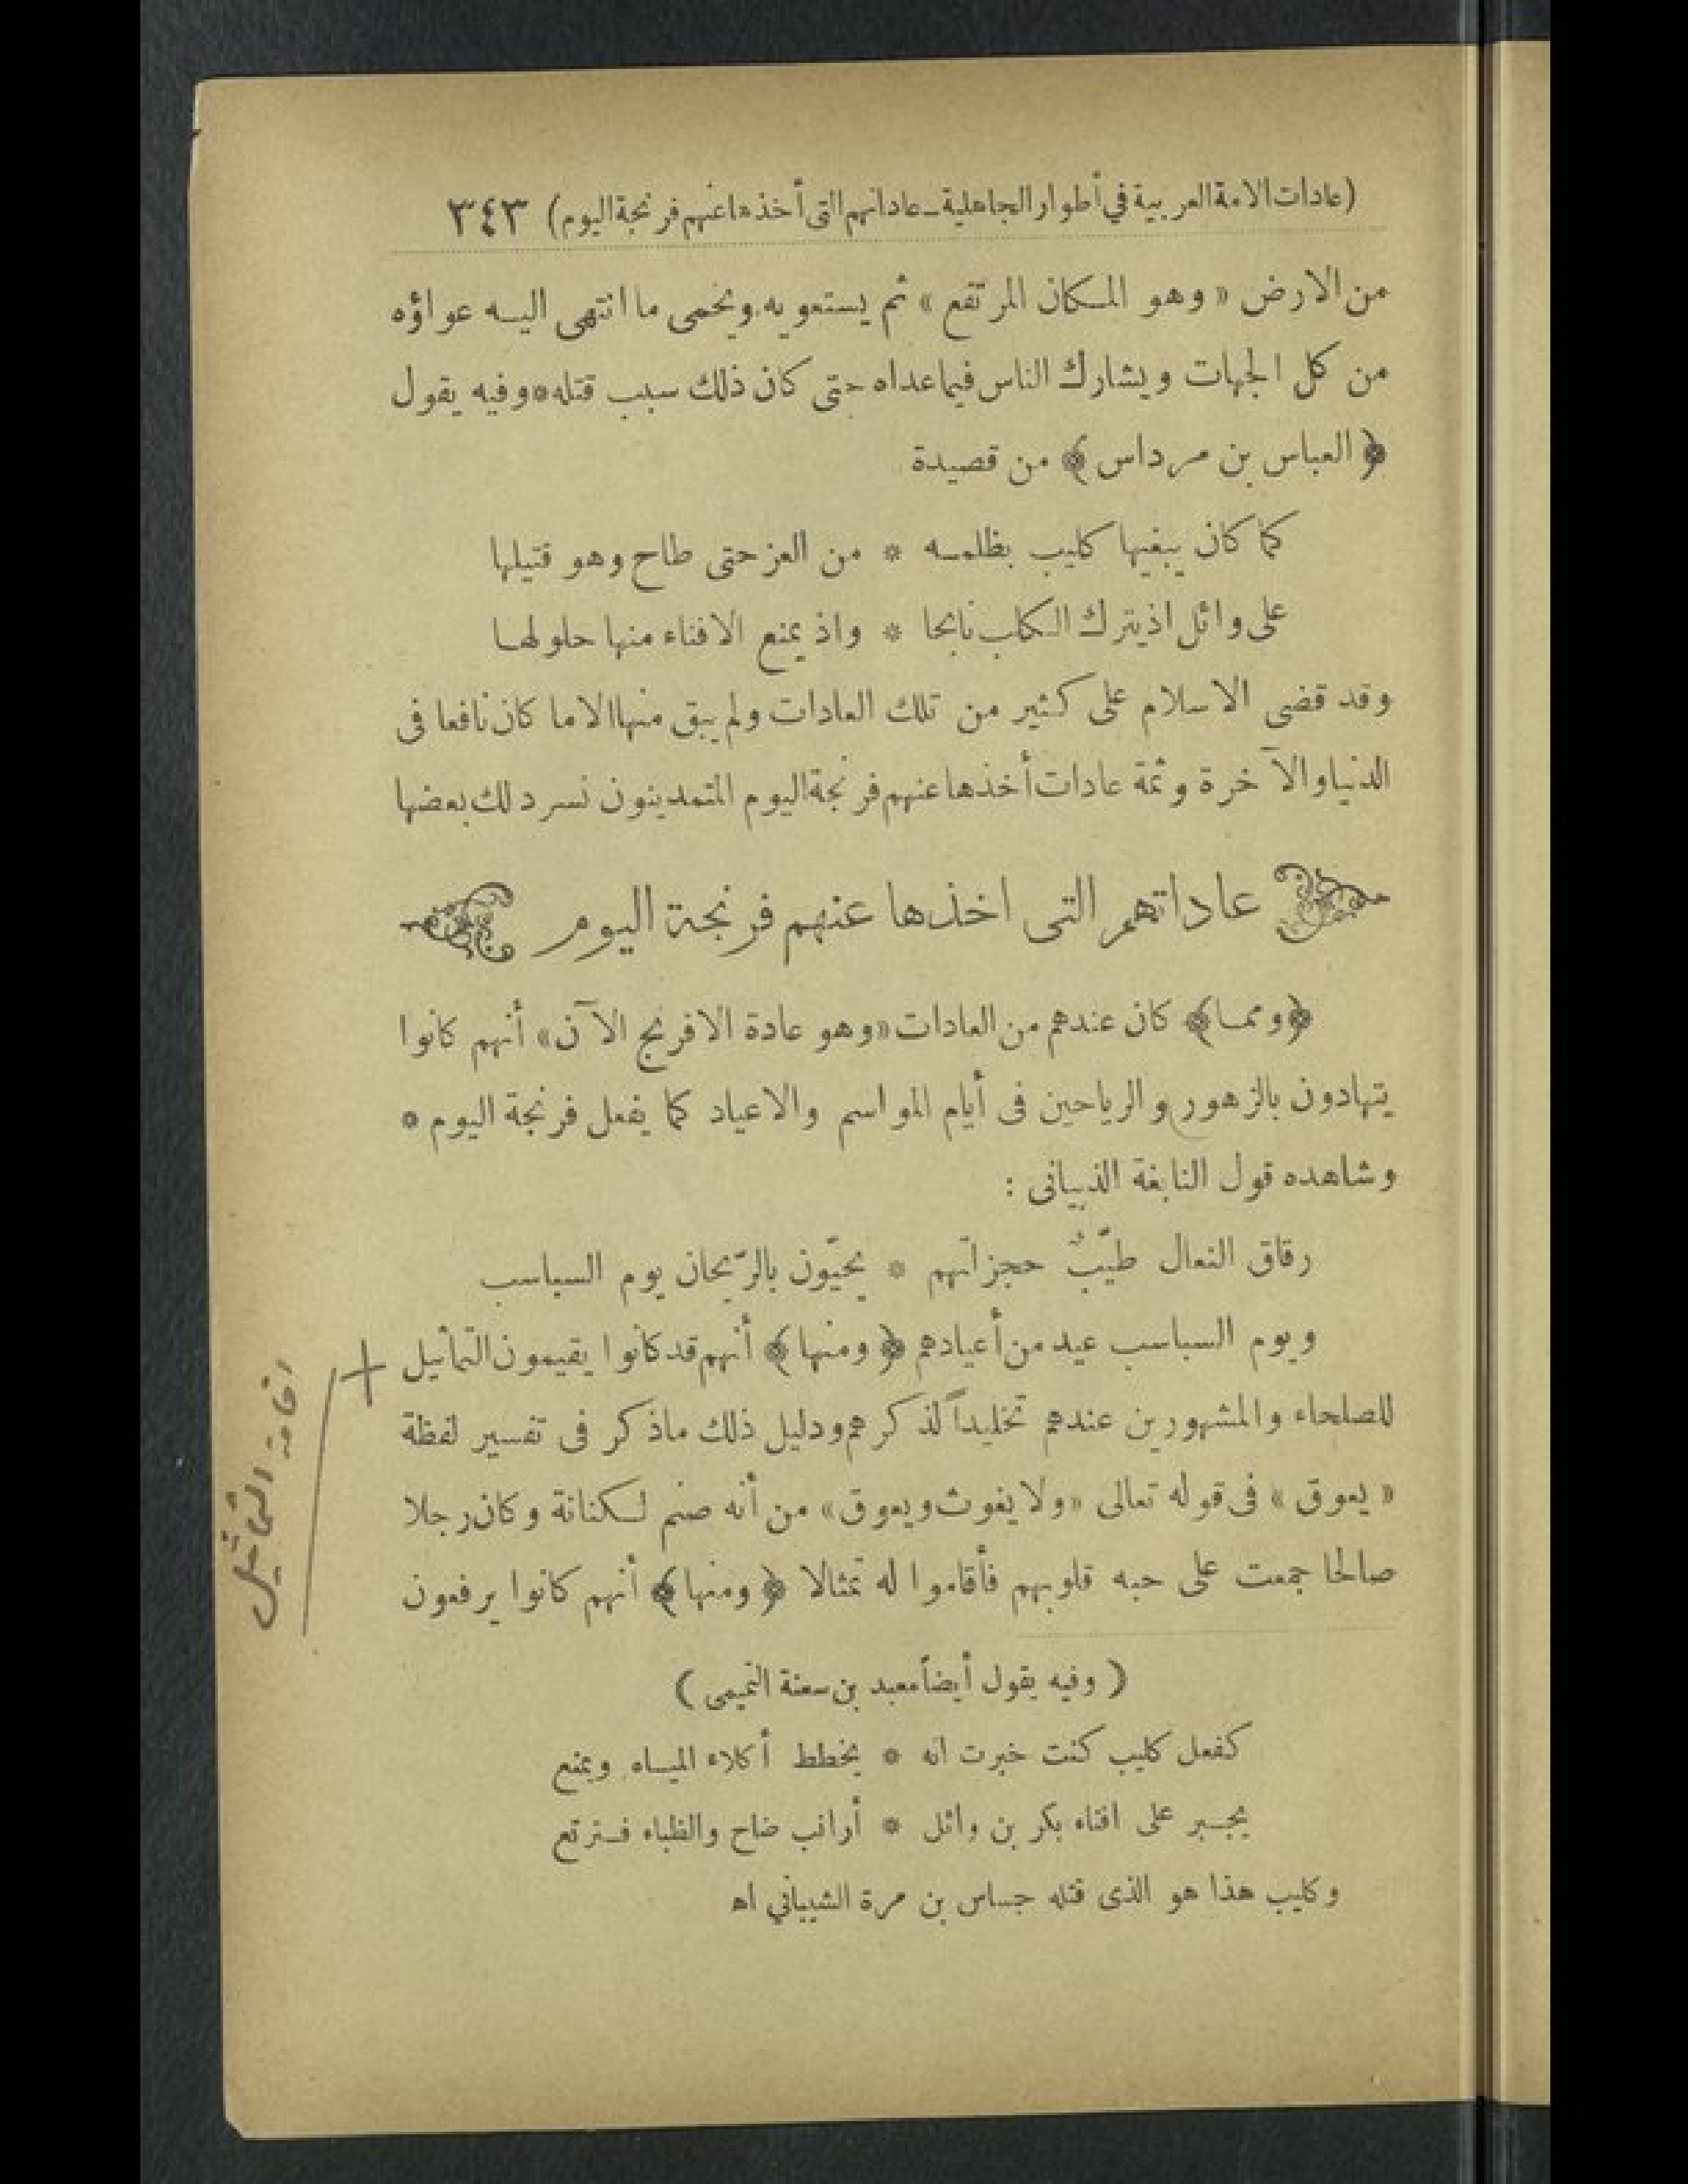 (عادات الامة العربية في أطوار الجاهلية ـ عاداتهم التي أخذها عنهم فرنجة اليوم) ٣٤٣
من الارض « وهو المكان المرتفع » ثم يستعويه ويحمى ما انتهى اليه عواؤه
من كل الجهات ويشارك الناس فيما عداه حتى كان ذلك سبب قتله * وفيه يقول
﴿ العباس بن مرداس ﴾ من قصيدة
كما كان يبغيها كليب بظلمه * من العز حتى طاح وهو قتيلها
على وائل اذ يترك الكلب نابحا * واذ يمنع الافناء منها حلولها
وقد قضى الاسلام على كثير من تلك العادات ولم يبق منها الا ما كان نافعا فى
الدنيا والآخرة وثمة عادات أخذها عنهم فرنجة اليوم المتمدينون نسرد لك بعضها
عاداتهم التى اخذها عنهم فرنجة اليوم
﴿ ومما ﴾ كان عندهم من العادات «وهو عادة الافرنج الآن» أنهم كانوا
يتهادون بالزهور والرياحين فى أيام المواسم والاعياد كما يفعل فرنجة اليوم *
وشاهده قول النابغة الذبيانى :
رقاق النعال طيّبٌ حجزاتهم * يحيّون بالرّيحان يوم السباسب
ويوم السباسب عيد من أعيادهم ﴿ ومنها ﴾ أنهم قد كانوا يقيمون التماثيل
للصلحاء والمشهورين عندهم تخليداً لذكرهم ودليل ذلك ماذكر فى تفسير لفظة
« يعوق » فى قوله تعالى «ولا يغوث ويعوق» من أنه صنم لكنانة وكان رجلا
صالحا جمعت على حبه قلوبهم فأقاموا له تمثالا ﴿ ومنها ﴾ أنهم كانوا يرفعون
اقامة التماثيل
( وفيه يقول أيضاً معبد بن سعنة التميمى )
كفعل كليب كنت خبرت انه * يخطط أكلاء المياه ويمنع
يجير على افناء بكر بن وائل * أرانب ضاح والظباء فترتع
وكليب هذا هو الذى قتله جساس بن مرة الشيباني اه